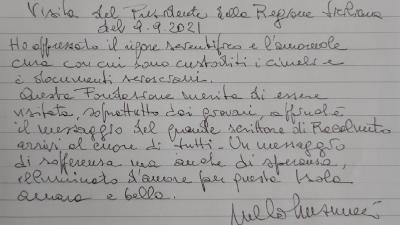 Visita del Presidente della Regione Siciliana
del 9.9.2021
Ho apprezzato il rigore scientifico e l'amorevole
cura con cui sono custoditi i cimeli e
i documenti sciasciani.
Questa Fondazione merita di essere
visitata, soprattutto dai giovani, affinché
il messaggio del grande scrittore di Racalmuto
arrivi al cuore di tutti. Un messaggio
di sofferenza ma anche di speranza,
illuminato d'amore per questa Isola
amara e bella.
Nello Musumeci